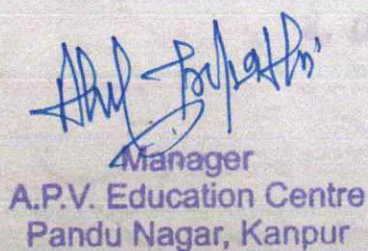 Manager
A.P.V. Education Centre
Pandu Nagar, Kanpur